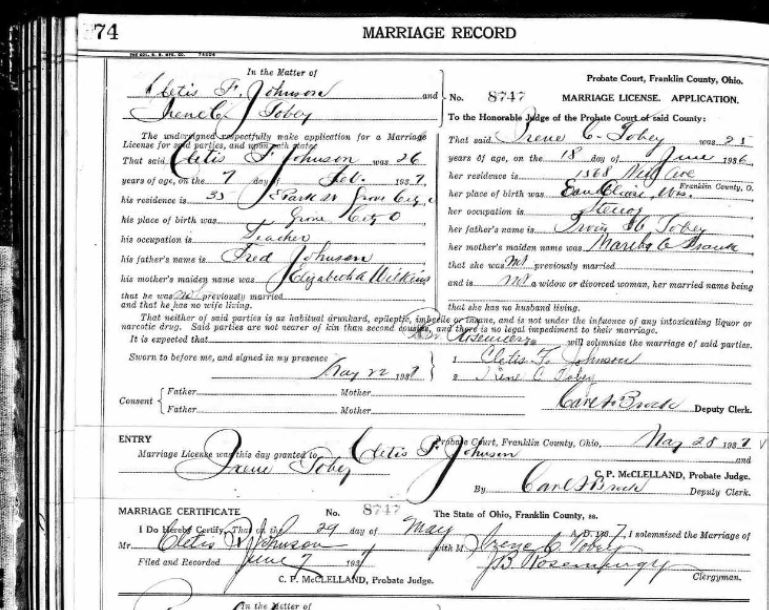 74
MARRIAGE RECORD
In the Matter of
Cletis F. Johnson and
Irene C. Tobey
The undersigned respectfully make application for a Marriage
License for said parties, and upon oath state:
That said Cletis F Johnson was 26
years of age, on the 7 day of Feb. 1937,
his residence is 35 E Park St Grove City O
his place of birth was Grove City O
his occupation is Teacher
his father's name is Fred Johnson
his mother's maiden name was Elizabeth Wilkins
that he was not previously married
and that he has no wife living.
Probate Court, Franklin County, Ohio.
No. 8747 MARRIAGE LICENSE. APPLICATION.
To the Honorable Judge of the Probate Court of said County:
That said Irene C. Tobey was 23
years of age, on the 18 day of June 1936,
her residence is 1568 Ave
Franklin County, O.
her place of birth was Eau Claire, Wis.
her occupation is Stenog
her father's name is Irvin Tobey
her mother's maiden name was Martha
that she was not previously married
and is not a widow or divorced woman, her married name being
that she has no husband living.
That neither of said parties is an habitual drunkard, epileptic, imbecile or insane, and is not under the influence of any intoxicating liquor or
narcotic drug. Said parties are not nearer of kin than second cousins, and there is no legal impediment to their marriage.
It is expected that will solemnize the marriage of said parties.
Sworn to before me, and signed in my presence
May 22 1937
1 Cletis F. Johnson
2 Irene C Tobey
Consent Father Mother
Father Mother
Deputy Clerk.
ENTRY
Probate Court, Franklin County, Ohio, May 28 1937
Marriage License was this day granted to Cletis F. Johnson and
Irene Tobey
C. P. McCLELLAND, Probate Judge.
By Deputy Clerk.
MARRIAGE CERTIFICATE No. 8747 The State of Ohio, Franklin County, ss.
I Do Hereby Certify, That on the 29 day of May A. D. 1937, I solemnized the Marriage of
Mr Cletis F Johnson with M Irene C Tobey
Filed and Recorded June 7 1937
Clergyman.
C. P. McCLELLAND, Probate Judge.
In the Matter of